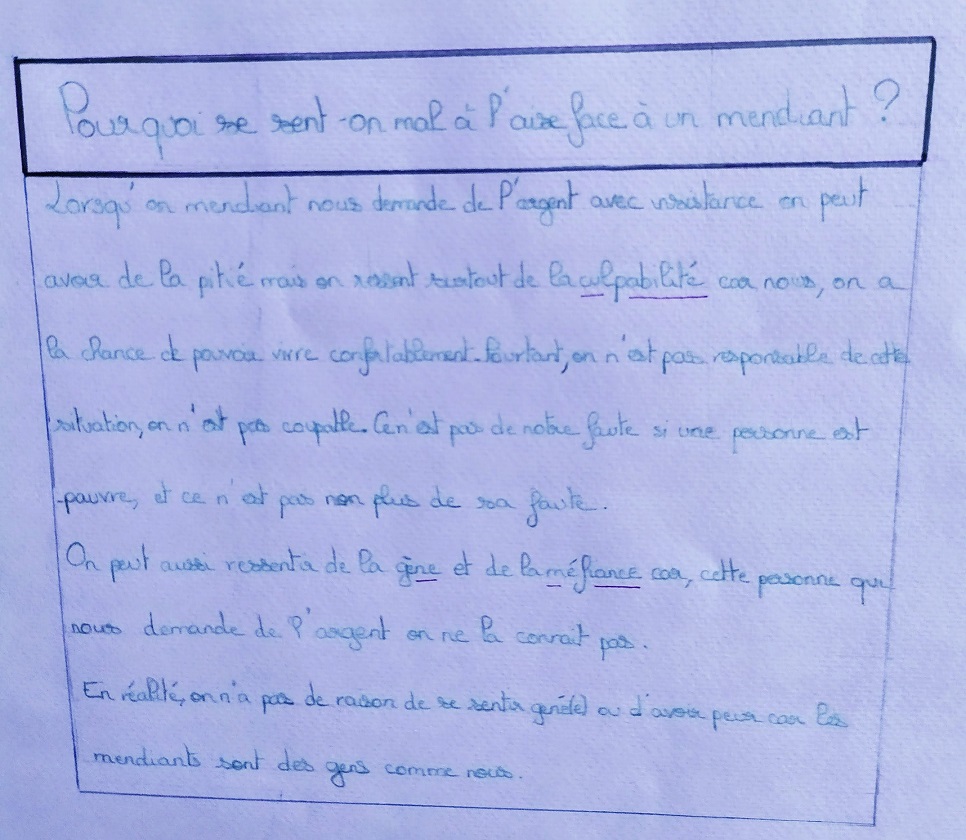 Pourquoi se sent-on mal à l'aise face à un mendiant ?
Lorsqu'on mendiant nous demande de l'argent avec insistance on peut
avoir de la pitié mais on ressent surtout de la culpabilité car nous, on a
la chance de pouvoir vivre confortablement. Pourtant, on n'est pas responsable de cette
situation, on n'est pas coupable. Ce n'est pas de notre faute si une personne est
pauvre, et ce n'est pas non plus de sa faute.
On peut aussi ressentir de la gêne et de la méfiance car, cette personne qui
nous demande de l'argent on ne la connait pas.
En réalité, on n'a pas de raison de se sentir gêné(e) ou d'avoir peur car les
mendiants sont des gens comme nous.